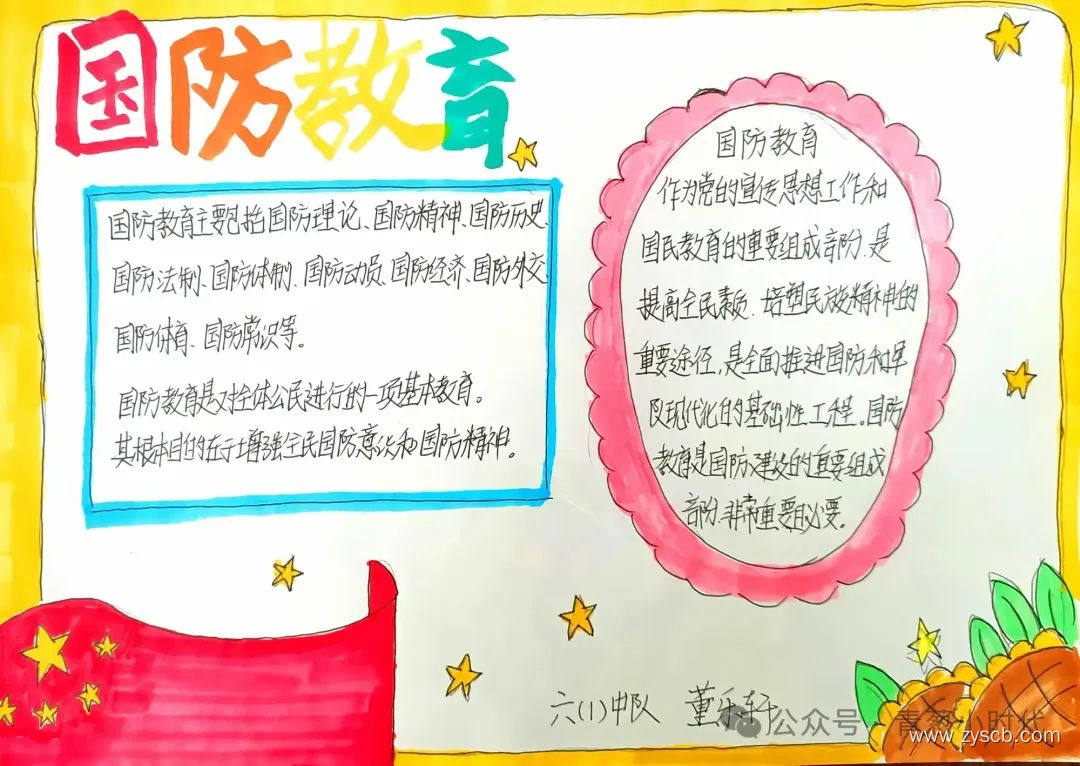 国防教育
国防教育主要包括国防理论、国防精神、国防历史、
国防法制、国防体制、国防动员、国防经济、国防外交、
国防体育、国防常识等。
国防教育是对全体公民进行的一项基本教育。
其根本目的在于增强全民国防意识和国防精神。
国防教育
作为党的宣传思想工作和
国民教育的重要组成部分.是
提高全民素质.培塑民族精神的
重要途径,是全面推进国防和军
队现代化的基础性工程。国防
教育是国防建设的重要组成
部分.非常重要且必要。
六(1)中队 董乐轩
公众号·青葱小时代
www.zyscb.com